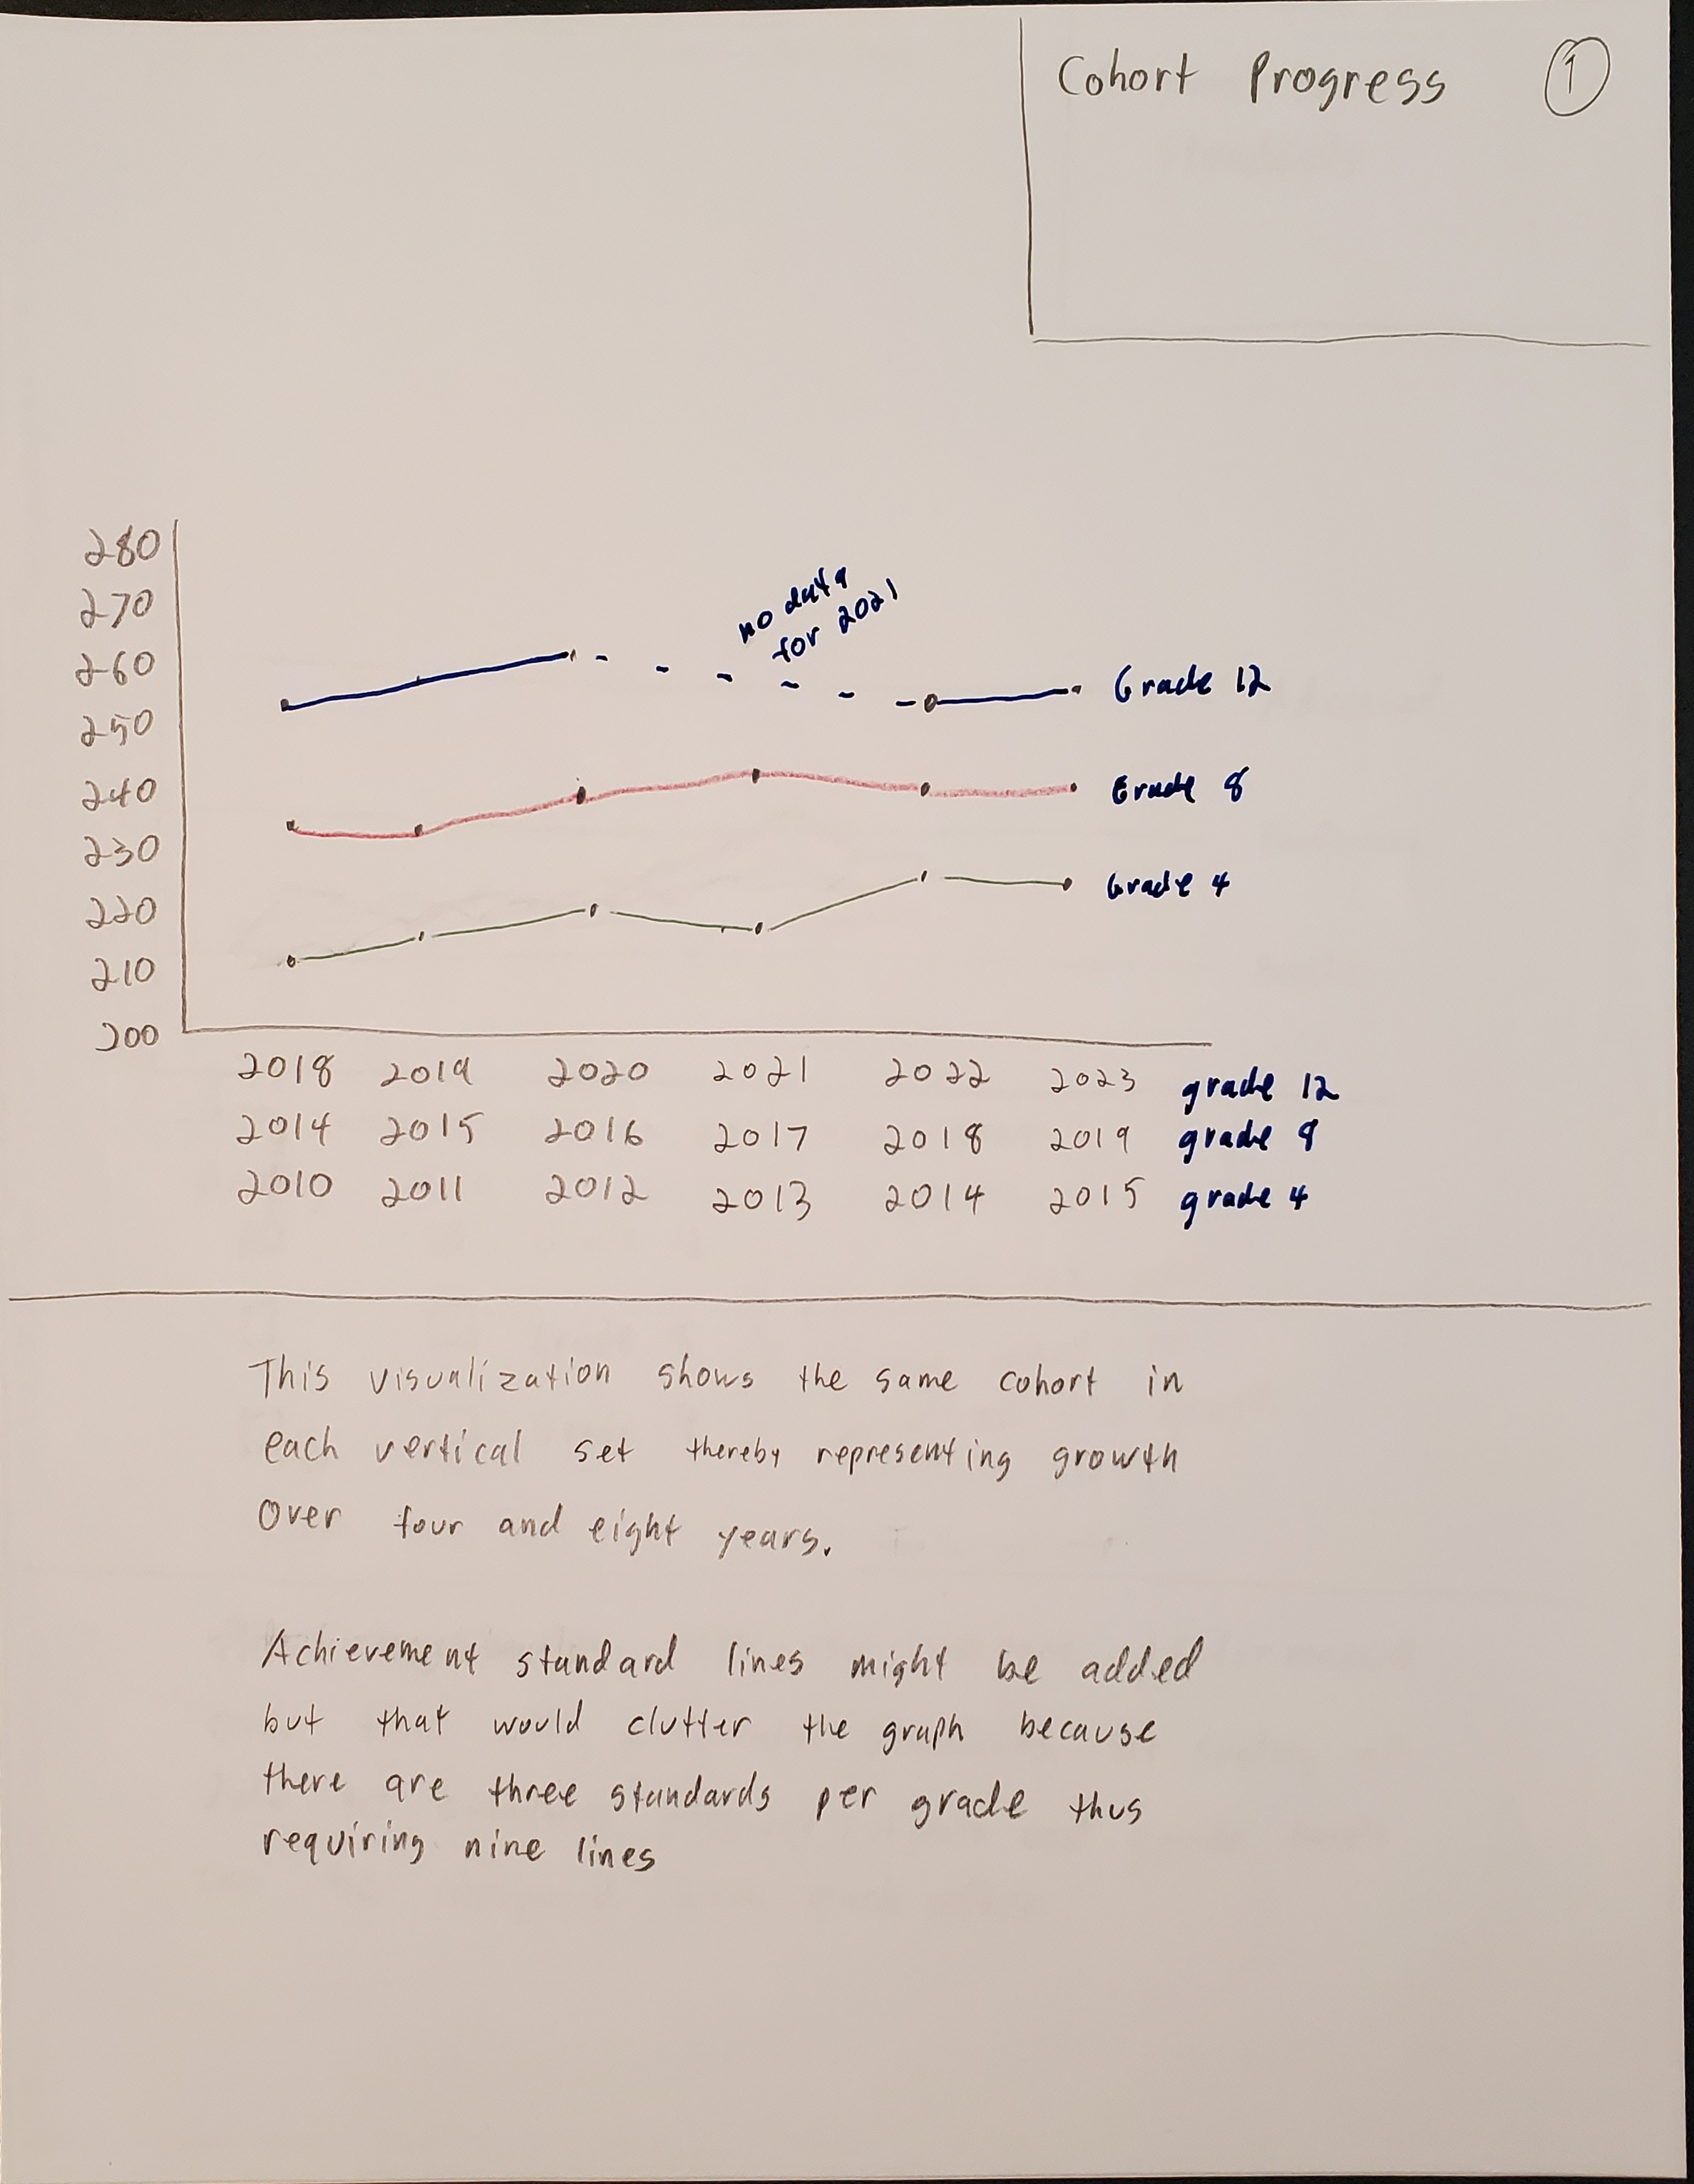 Cohort Progress 1
280
270
260
250
240
230
220
210
200
no data
for 2021
Grade 12
Grade 8
Grade 4
2018 2019 2020 2021 2022 2023 grade 12
2014 2015 2016 2017 2018 2019 grade 8
2010 2011 2012 2013 2014 2015 grade 4
This visualization shows the same cohort in
each vertical set thereby representing growth
over four and eight years.
Achievement standard lines might be added
but that would clutter the graph because
there are three standards per grade thus
requiring nine lines